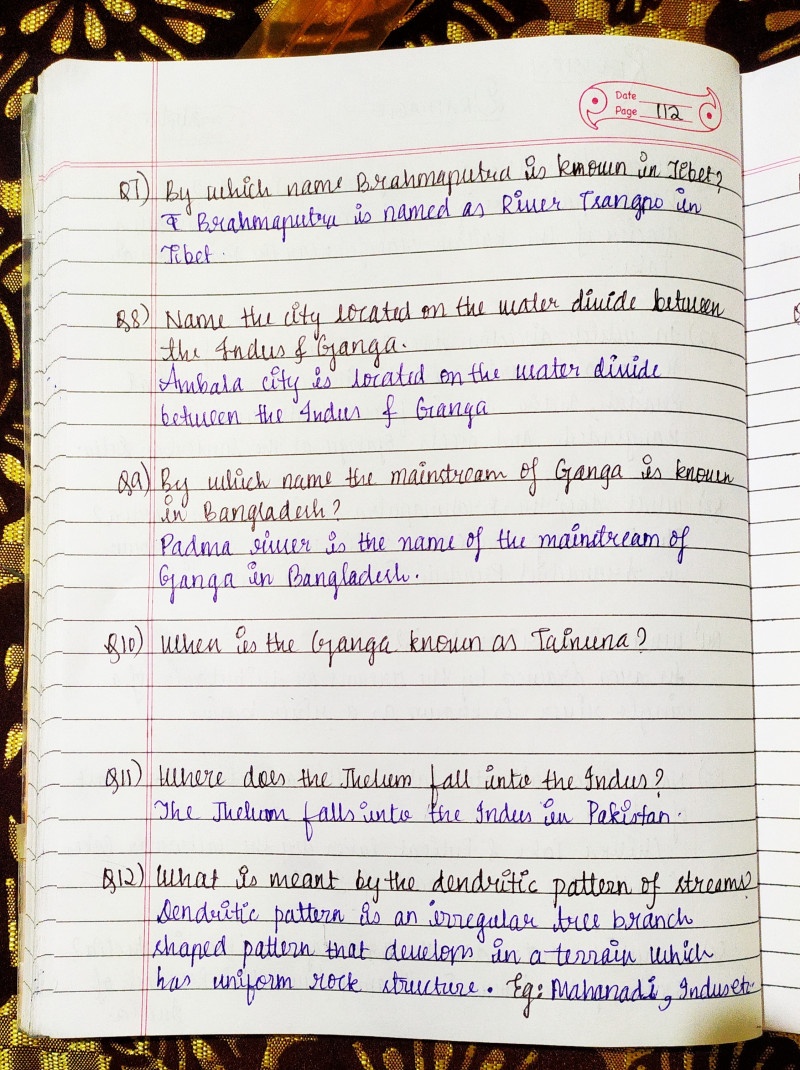 Date
Page 112
Q7) By which name Brahmaputra is known in Tibet?
Brahmaputra is named as River Tsangpo in
Tibet.
Q8) Name the city located on the water divide between
the Indus & Ganga.
Ambala city is located on the water divide
between the Indus & Ganga
Q9) By which name the mainstream of Ganga is known
in Bangladesh?
Padma river is the name of the mainstream of
Ganga in Bangladesh.
Q10) When is the Ganga known as Tainuna?
Q11) Where does the Jhelum fall into the Indus?
The Jhelum falls into the Indus in Pakistan.
Q12) What is meant by the dendritic pattern of streams?
Dendritic pattern is an irregular tree branch
shaped pattern that develops in a terrain which
has uniform rock structure. Eg: Mahanadi, Indus etc